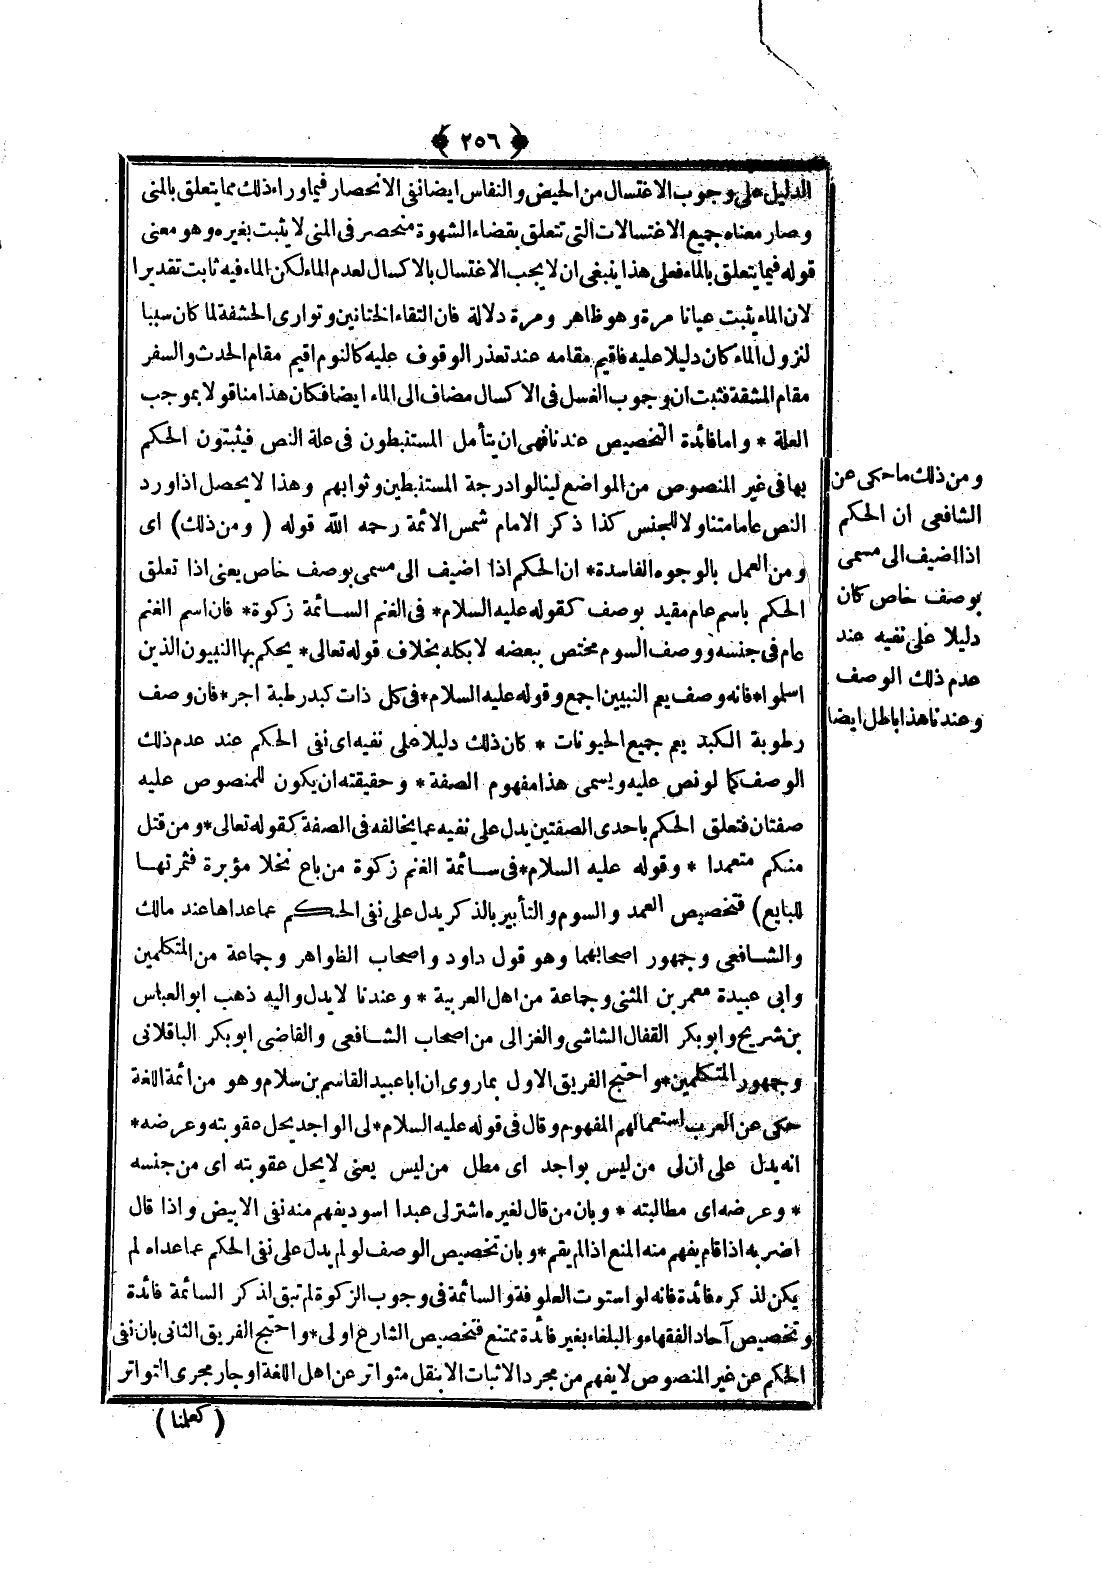 ﴿ ٢٥٦ ﴾
الدليل على وجوب الاغتسال من الحيض والنفاس ايضا نفى الانحصار فيما وراء ذلك مما يتعلق بالمنى
وصار معناه جميع الاغتسالات التى تتعلق بقضاء الشهوة منحصر فى المنى لا يثبت بغيره وهو معنى
قوله فيما يتعلق بالماء فعلى هذا ينبغى ان لا يجب الاغتسال بالاكسال لعدم الماء لكن الماء فيه ثابت تقديرا
لان الماء يثبت عيانا مرة وهو ظاهر ومرة دلالة فان التقاء الختانين وتوارى الحشفة لما كان سببا
لنزول الماء كان دليلا عليه فاقيم مقامه عند تعذر الوقوف عليه كالنوم اقيم مقام الحدث والسفر
مقام المشقة فثبت ان وجوب الغسل فى الاكسال مضاف الى الماء ايضا فكان هذا منا قولا بموجب
العلة * واما فائدة التخصيص عندنا فهى ان يتأمل المستنبطون فى علة النص فيثبتون الحكم
بها فى غير المنصوص من المواضع لينالوا درجة المستنبطين وثوابهم وهذا لا يحصل اذا ورد
النص عاما متناولا للجنس كذا ذكر الامام شمس الائمة رحمه الله قوله ( ومن ذلك ) اى
ومن العمل بالوجوه الفاسدة* ان الحكم اذا اضيف الى مسمى بوصف خاص يعنى اذا تعلق
الحكم باسم عام مقيد بوصف كقوله عليه السلام* فى الغنم السائمة زكوة* فان اسم الغنم
عام فى جنسه ووصف السوم مختص ببعضه لا بكله بخلاف قوله تعالى* يحكم بها النبيون الذين
اسلموا* فانه وصف يعم النبيين اجمع وقوله عليه السلام* فى كل ذات كبد رطبة اجر* فان وصف
رطوبة الكبد يعم جميع الحيونات * كان ذلك دليلا على نفيه اى نفى الحكم عند عدم ذلك
الوصف كما لو نص عليه ويسمى هذا مفهوم الصفة * وحقيقته ان يكون للمنصوص عليه
صفتان فتعلق الحكم باحدى الصفتين يدل على نفيه عما يخالفه فى الصفة كقوله تعالى* ومن قتل
منكم متعمدا * وقوله عليه السلام* فى سائمة الغنم زكوة من باع نخلا مؤبرة فثمرتها
للبايع) فتخصيص العمد والسوم والتأبير بالذكر يدل على نفى الحكم عما عداها عند مالك
والشافعى وجمهور اصحابهما وهو قول داود واصحاب الظواهر وجماعة من المتكلمين
وابى عبيدة معمر بن المثنى وجماعة من اهل العربية * وعندنا لا يدل واليه ذهب ابو العباس
بن شريح وابو بكر القفال الشاشى والغزالى من اصحاب الشافعى والقاضى ابوبكر الباقلانى
وجمهور المتكلمين* واحتج الفريق الاول بما روى ان ابا عبيد القاسم بن سلام وهو من ائمة اللغة
حكى عن العرب استعمالهم المفهوم وقال فى قوله عليه السلام* لى الواجد يحل عقوبته وعرضه*
انه يدل على ان لى من ليس بواجد اى مطل من ليس يعنى لا يحل عقوبته اى من جنسه
* وعرضه اى مطالبته * وبان من قال لغيره اشتر لى عبدا اسود يفهم منه نفى الابيض واذا قال
اضربه اذا قام يفهم منه المنع اذا لم يقم* وبان تخصيص الوصف لو لم يدل على نفى الحكم عما عداه لم
يكن لذكره فائدة فانه لو استوت العلوفة والسائمة فى وجوب الزكوة لم تبق لذكر السائمة فائدة
وتخصيص آحاد الفقهاء والبلغاء بغير فائدة ممتنع فتخصيص الشارع اولى* واحتج الفريق الثانى بان نفى
الحكم عن غير المنصوص لا يفهم من مجرد الاثبات الا بنقل متواتر عن اهل اللغة او جار مجرى التواتر
( كعلمنا )
ومن ذلك ما حكى عن
الشافعى ان الحكم
اذا اضيف الى مسمى
بوصف خاص كان
دليلا على نفيه عند
عدم ذلك الوصف
وعندنا هذا باطل ايضا